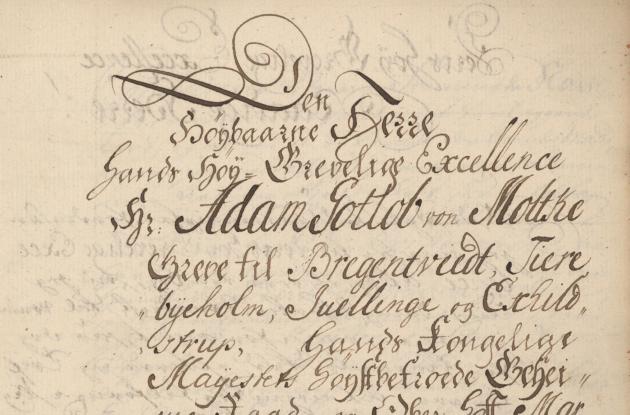 Den
Høybaarne Herre
Hands Høy= Grevelige Excellence
Hr: Adam Gotlob von Moltke
Greve til Bregentvedt, Tiere
„byeholm, Juellinge og Eskild„
„strup, Hands Kongelige
Mayestets høystbetroede Gehei„
me Raad, og Ober Hoff Mar